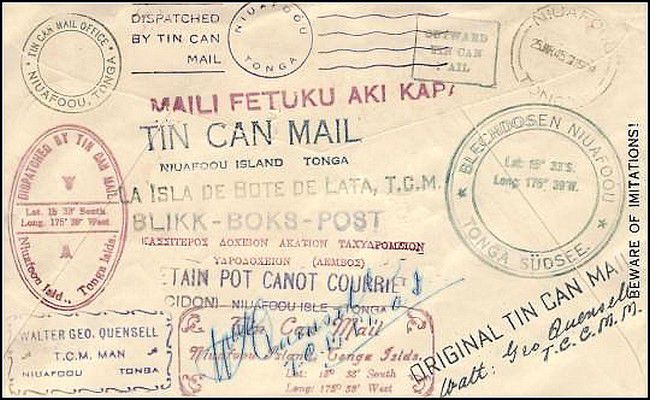 TIN CAN MAIL OFFICE
NIUAFOOU, TONGA
DISPATCHED
BY TIN CAN
MAIL
NIUAFOOU
TONGA
OUTWARD
TIN CAN
MAIL
NIUAFOOU
TONGA
MAILI FETUKU AKI KAPA
TIN CAN MAIL
NIUAFOOU ISLAND TONGA
LA ISLA DE BOTE DE LATA, T.C.M.
BLIKK-BOKS-POST
ΚΑΣΣΙΤΕΡΟΣ ΔΟΧΕΙΟΝ ΑΚΑΤΙΟΝ ΤΑΧΥΔΡΟΜΕΙΟΝ
ΥΔΡΟΔΟΧΕΙΟΝ (ΛΕΜΒΟΣ)
ETAIN POT CANOT COURRIE
CIDON) NIUAFOOU ISLE TONGA
DISPATCHED BY TIN CAN MAIL
Lat. 15 33' South
Long. 175° 39' West
Niuafoou Isld., Tonga Islds.
BLECHDOSEN NIUAFOOU
Lat: 15° 33'S.
Long: 175° 39'W.
TONGA SÜDSEE.
BEWARE OF IMITATIONS!
WALTER GEO. QUENSELL
T.C.M. MAN
NIUAFOOU TONGA
Tin Can Mail
Niuafoou Island, Tonga Islds.
Lat: 15° 33' South
Long: 175° 38' West
ORIGINAL TIN CAN MAIL
Walt: Geo Quensell
T.C.C.M.M.